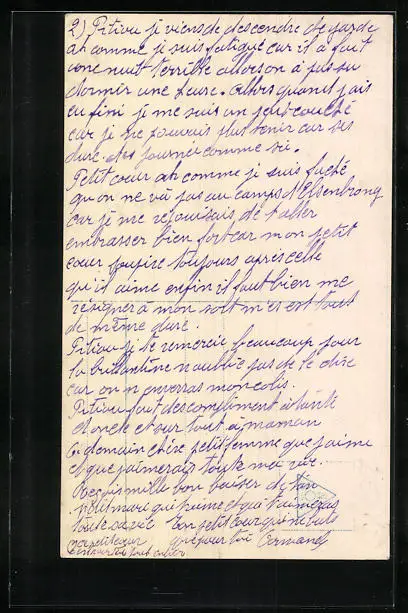 2) Pitiou je viens de descendre de garde
ah comme je suis fatigué car il a fait
une nuit terrible alors on a pas su
dormir une heure. Alors quand j'ais
eu fini je me suis un peut couché
car je ne pouvais plus tenir car ses
dure des journée comme sa.
Petit cœur ah comme je suis faché
qu'on ne va pas au camps d'Elsenbrong
car je me rejouisais de t'aller
embrasser bien fort car mon petit
cœur soupire toujours après celle
qu'il aime enfin il faut bien me
résigner à mon sort m'es est tout
de même dure.
Pitiou je te remercie beaucoup pour
la brillantine n'oublie pas de le dire
car on m'enverras mon colis.
Pitiou fait des compliment à tante
et oncle et sur tout à maman
à demain chère petit femme que j'aime
et que j'aimerais toute ma vie.
Reçois mille bon baiser de ton
petit mari qui t'aime et qui t'aimeras
toute sa vie Ton petit cœur qui ne bats
que pour toi Armand
mon petit cœur
est pour toi tout entier